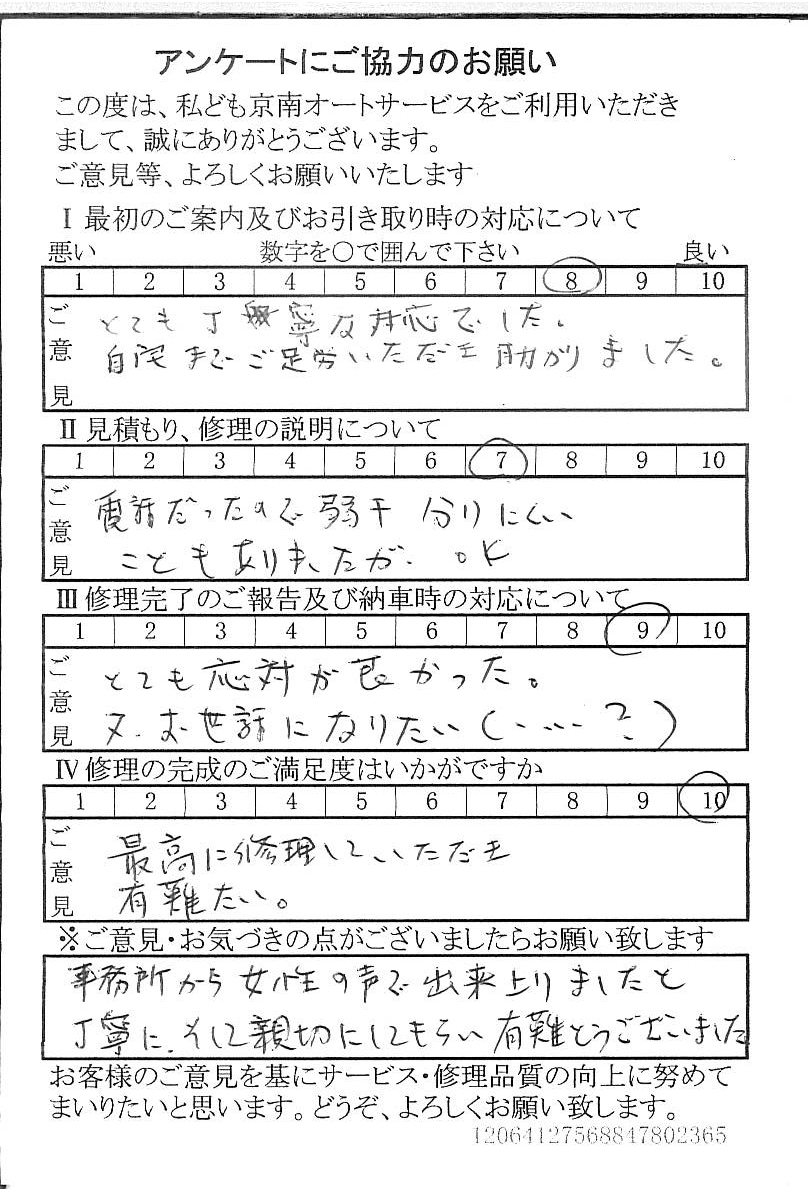 アンケートにご協力のお願い
この度は、私ども京南オートサービスをご利用いただき
まして、誠にありがとうございます。
ご意見等、よろしくお願いいたします
Ⅰ 最初のご案内及びお引き取り時の対応について
悪い 数字を○で囲んで下さい 良い
1 2 3 4 5 6 7 8 9 10
ご意見
とても丁寧な対応でした。
自宅までご足労いただき助かりました。
Ⅱ 見積もり、修理の説明について
1 2 3 4 5 6 7 8 9 10
ご意見
電話だったので弱干分りにくい
こともありましたが、OK
Ⅲ 修理完了のご報告及び納車時の対応について
1 2 3 4 5 6 7 8 9 10
ご意見
とても応対が良かった。
又、お世話になりたい(‥‥?)
Ⅳ 修理の完成のご満足度はいかがですか
1 2 3 4 5 6 7 8 9 10
ご意見
最高に修理していただき
有難たい。
※ご意見・お気づきの点がございましたらお願い致します
事務所から女性の声で出来上りましたと
丁寧に、そして親切にしてもらい有難とうございました
お客様のご意見を基にサービス・修理品質の向上に努めて
まいりたいと思います。どうぞ、よろしくお願い致します。
12064127568847802365